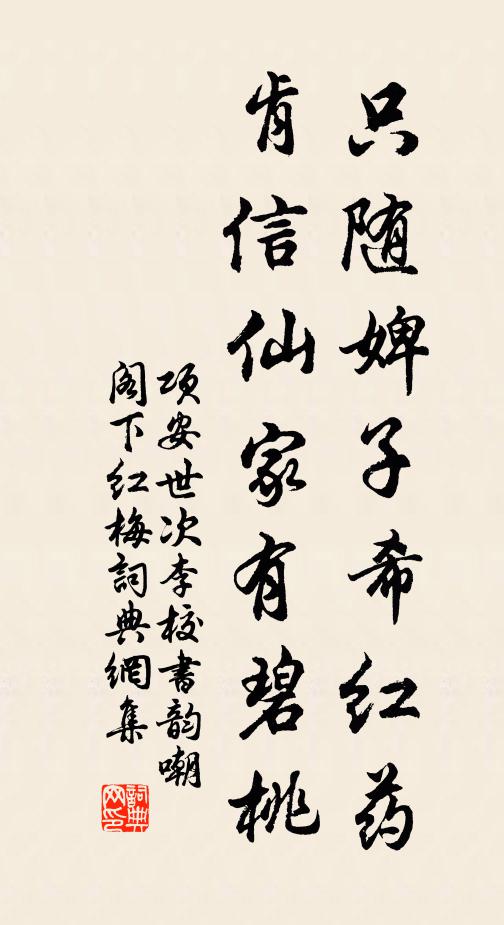 只随婢子希红药
肯信仙家有碧桃
项安世次李校书韵嘲
阁下红梅词典网集
词典网印